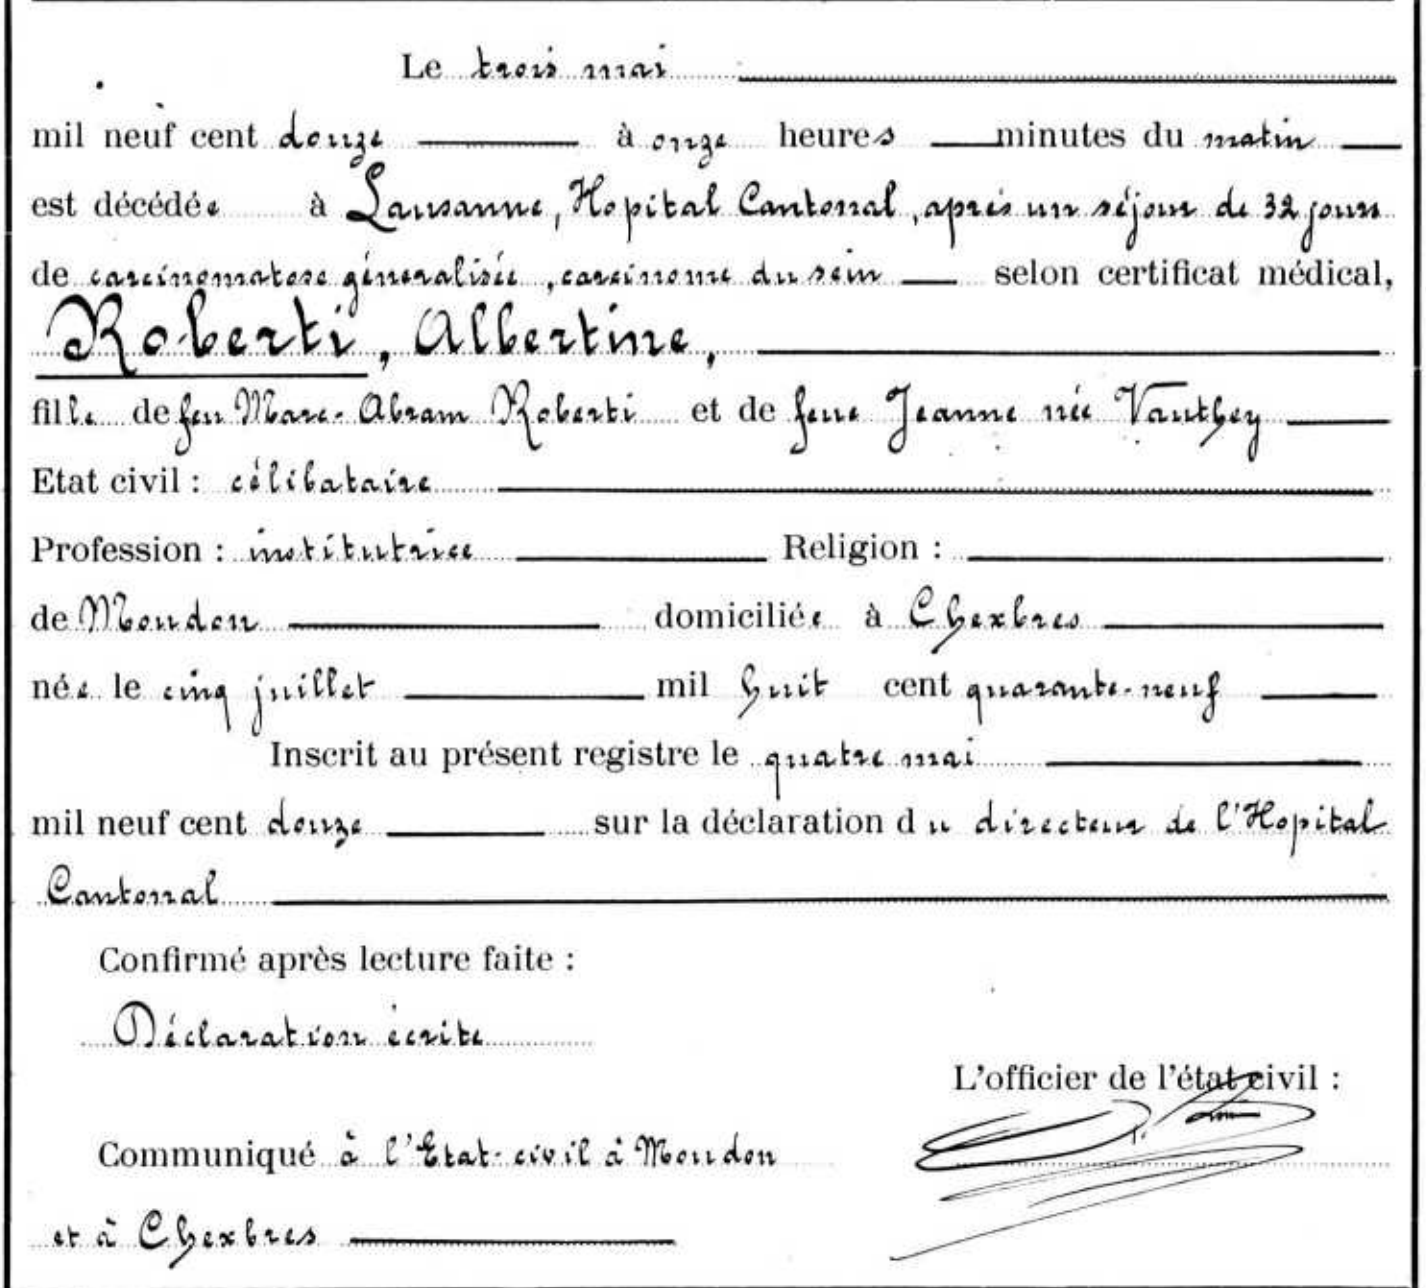 Le trois mai
mil neuf cent douze à onze heures minutes du matin
est décédée à Lausanne, Hopital Cantonal, après un séjour de 32 jours
de carcinomatose généralisée, carcinome du sein selon certificat médical,
Roberti, Albertine,
fille de feu Marc-Abram Roberti et de feue Jeanne née Vauthey
Etat civil : célibataire
Profession : institutrice Religion :
de Moudon domiciliée à Chexbres
née le cinq juillet mil huit cent quarante-neuf
Inscrit au présent registre le quatre mai
mil neuf cent douze sur la déclaration du directeur de l'Hopital
Cantonal
Confirmé après lecture faite :
Déclaration écrite
L'officier de l'état civil :
Communiqué à l'Etat-civil à Moudon
et à Chexbres